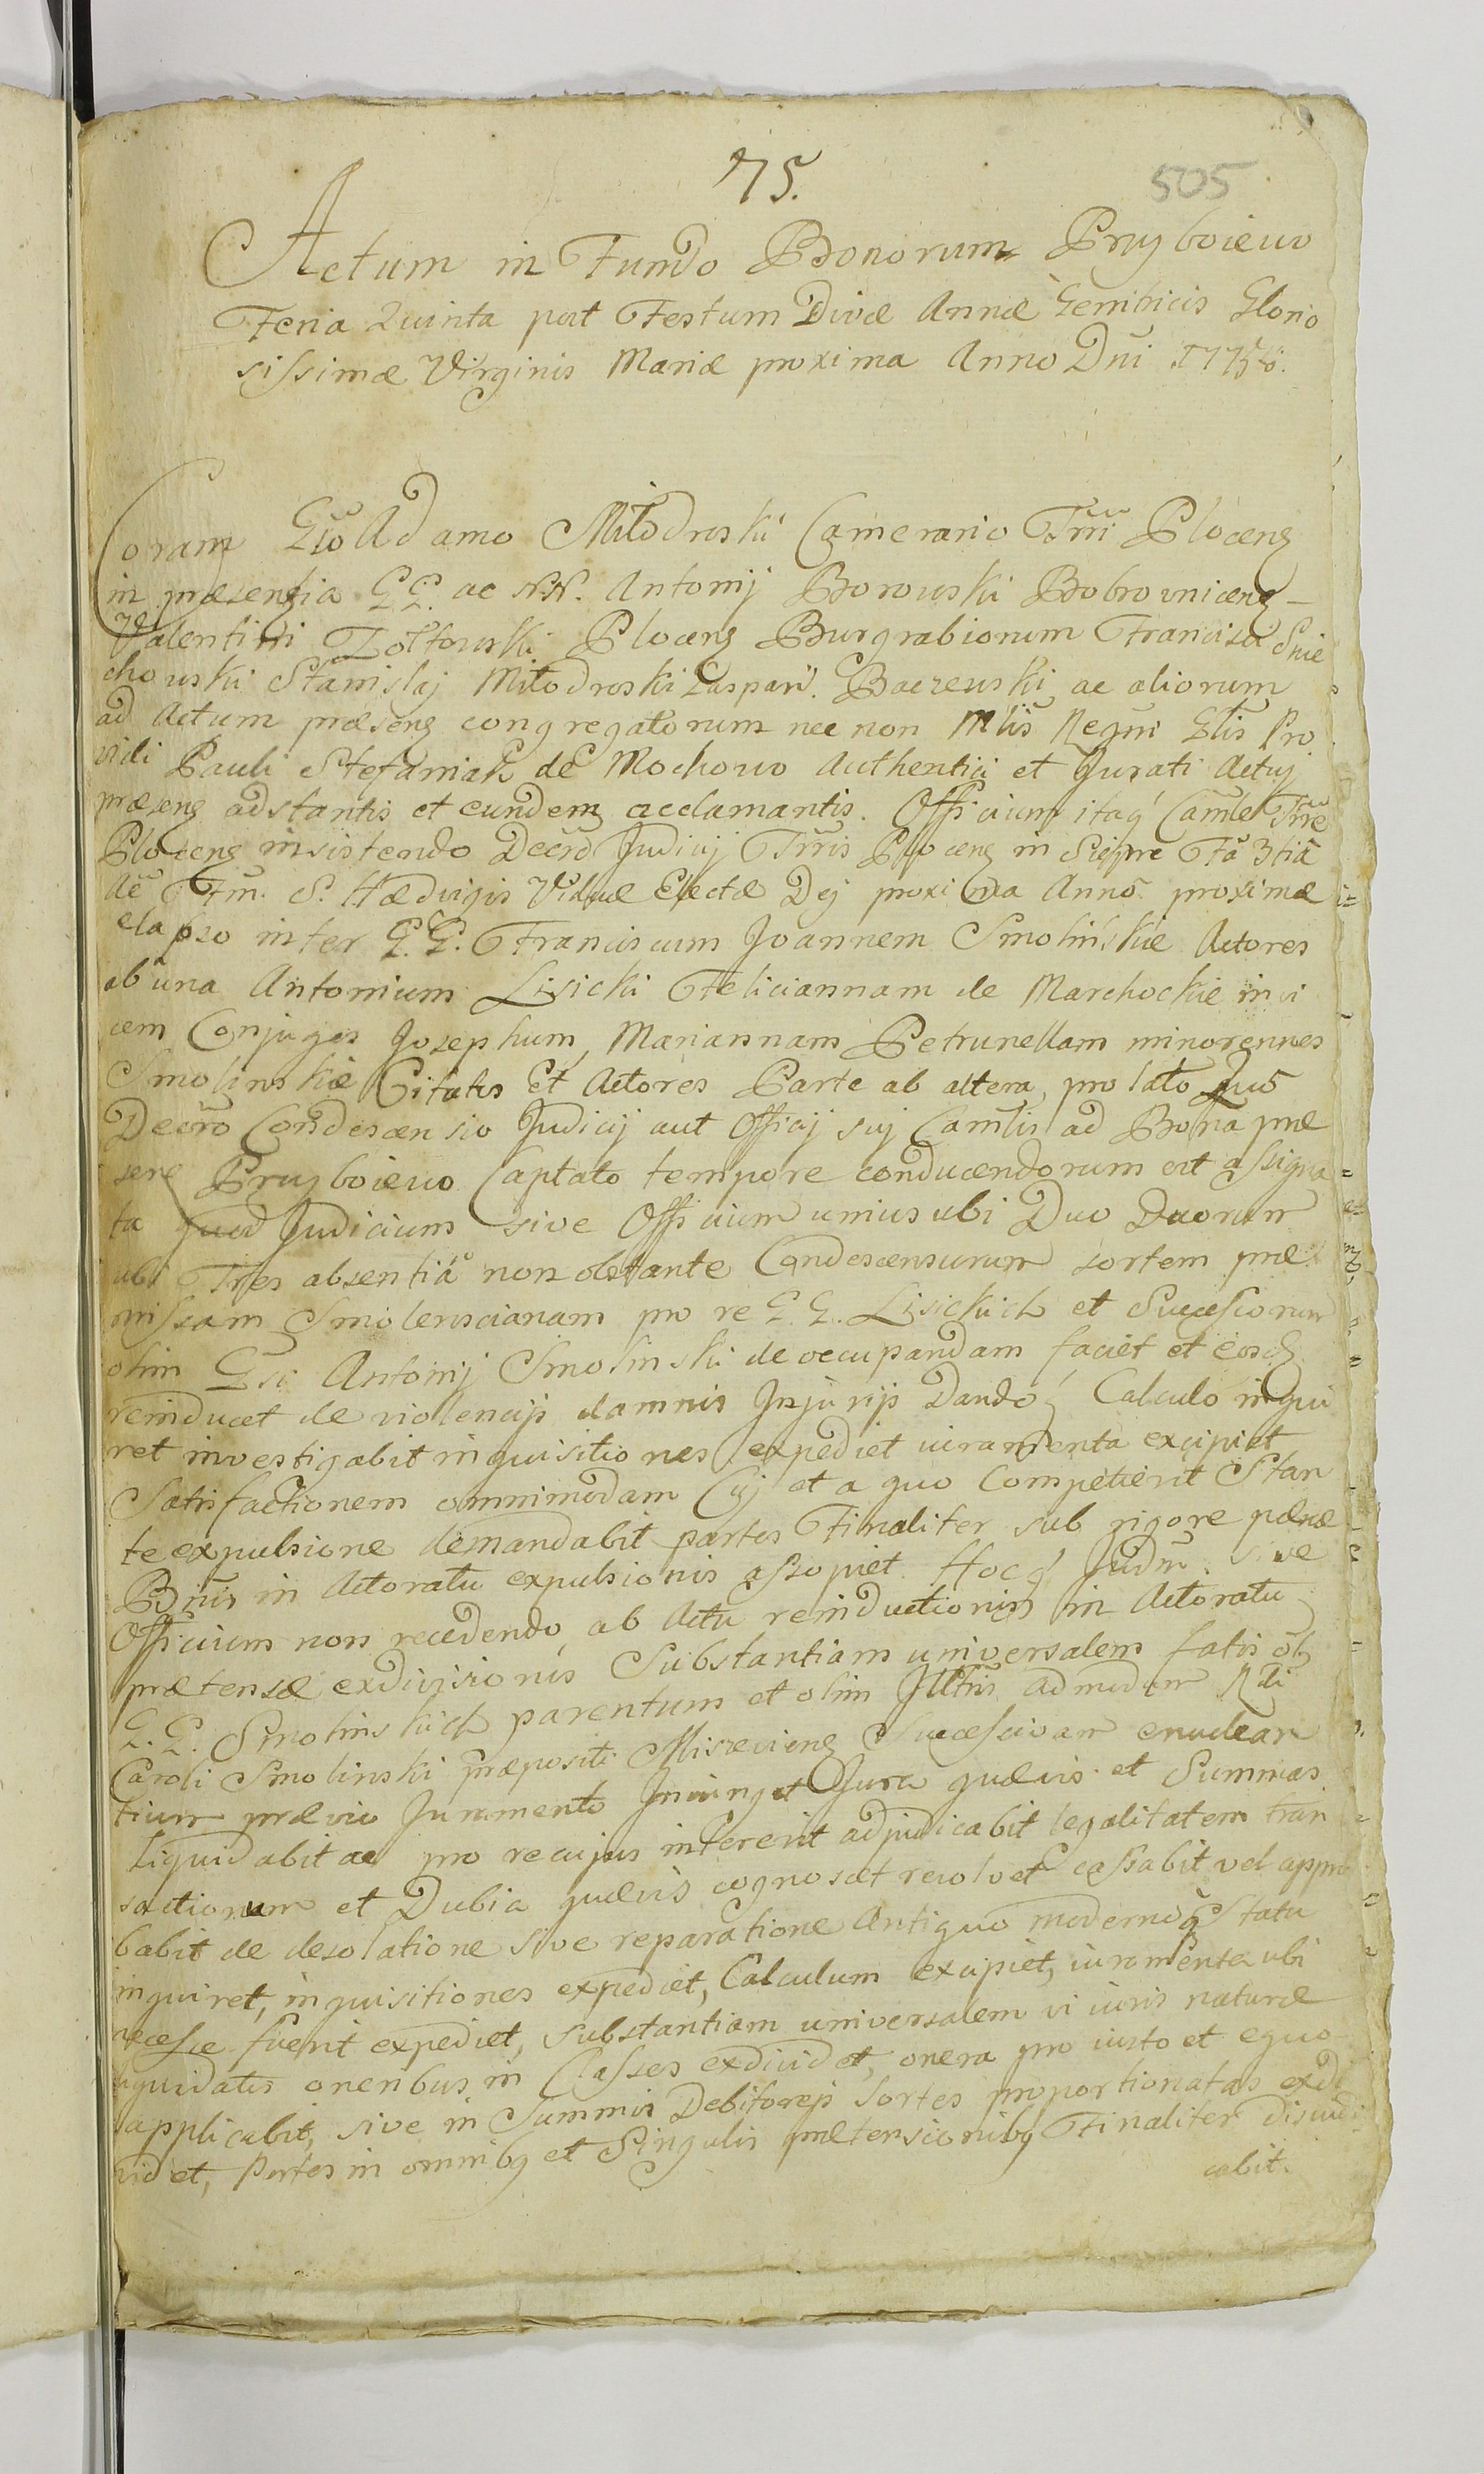 75.
505
Actum in Fundo Bonorum Przyboiewo
Feria Quinta post Festum Divæ Annæ Genitricis Glorio
sissimæ Virginis Mariæ proxima Anno Dni
Coram Gso Adamo Miłodroski Camerario Trrri Plocens
in præsentia GG. ac NN. Antonij Borowski Bobrownicens
Valentini Zołtowski Plocens Burgrabiorum Francisci Snie
chowski Stanislaj Miłodroski Caspari Baczewski ac aliorum
ad Actum præsens congregatorum nec non Mlis Regni Glis Pro
vidi Pauli Stefaniak de Mochowo Authentici et Jurati Actuj
præsens adstantis et eundem acclamantis. Officium itaq Camle Trre
Plocens insistendo Decro Judicij Trris Plocens in Sierpc Fa 3tia
Ftm. S. Hædvigis Viduæ Electæ Dej proxima Anno proximæ
elapso inter G.G. Franciscum Joannem Smolinskie Actores
ab una Antonium Lisicki Feliciannam de Marchockie invi
cem Conjuges Josephum, Mariannam Petrunellam minorennes
Smolinskie Citatos Et Actores Parte ab altera, prolato Quo
Decro Condescensio Judicij aut Officij sui Camlis ad Bona præ
sere Przyboiewo Captato tempore conducendorum est assigna
ta quod Judicium sive Officium unius ubi Duo Duorum
ubi Tres absentia non obstante Condescensurum sortem præ
missam Smolenscianam pro re G.G. Lisickich et Successorum
olim Gsi Antonij Smolinski de occupandam faciet et eosd
reinducet de violencijs damnis Injurijs Dandoq Calculo inqui
ret investigabit inquisitiones expediet iuramenta excipiet
Satisfactionem omnimodam Cuj et a quo Competierit Stan
te expulsione demandabit partes Finaliter sub rigore pænæ
Bnis in Actoratu expulsionis assopiet. Hocq Judm. sive
Officium non recedendo, ab Actu reinductionis in Actoratu
prætensæ exdivisionis Substantiam universalem fatis ol
G.G. Smolinskich parentum et olim Illtris admodum Rdi
Caroli Smolinski præpositi Successivam enuclean
tium prævio Juramento Iniunget Jura quævis et Summas
liquidabit ac pro re cujus intererit adjudicabit legalitatem tran
sactionum et Dubia quævis cognoscet resolvet cassabit vel appro
babit de desolatione sive reparatione Antiquo modernoq Statu
inquiret, inquisitiones expediet, Calculum excipiet, iuramenta ubi
necesse fuerit expediet, substantiam universalem vi iuris naturæ
liquidatis oneribus in Classes exdividet, onera pro iusto et equo
applicabit, sive in Summis Debitorijs Sortes proportionatas exdi
videt, Partes in omnibq et Singulis prætensionibq Finaliter disiudi
cabit.